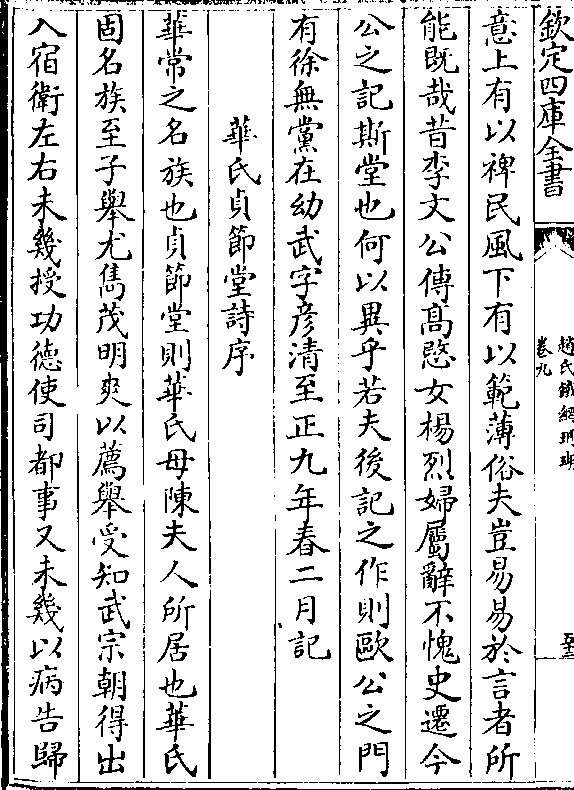 欽定四庫全書
趙氏鐵網珊瑚
卷九
意上有以裨民風下有以範薄俗夫豈易易於言者所
能既哉昔李文公傳髙愍女楊烈婦屬辭不愧史遷今
公之記斯堂也何以異乎若夫後記之作則歐公之門
有徐無黨在幼武字彦清至正九年春二月記
華氏貞節堂詩序
華常之名族也貞節堂則華氏母陳夫人所居也華氏
固名族至子舉尤雋茂明爽以薦舉受知武宗朝得出
入宿衛左右未幾授功德使司都事又未幾以病告歸